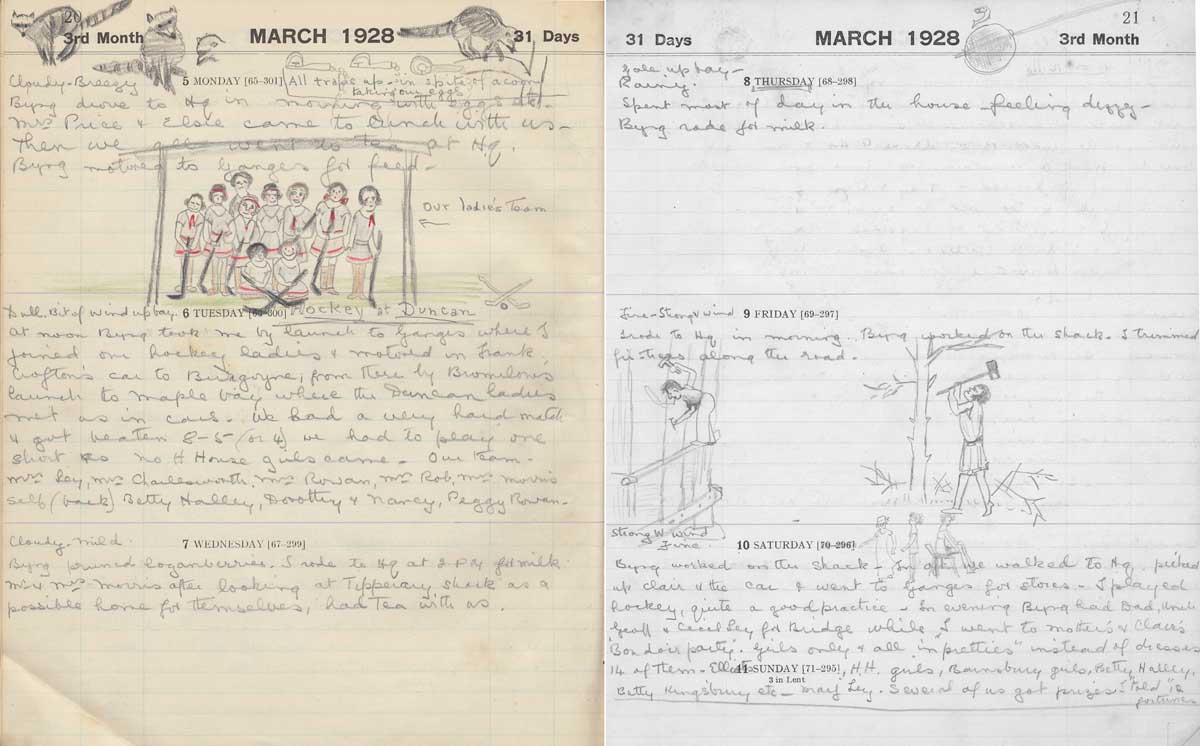 20
3rd Month
MARCH 1928
31 Days
Cloudy-Breezy
5 MONDAY [65-301]
All traps up - in spite of acorn
taking our eggs
Byrg drove to Hq in morning with eggs etc.
Mrs Price & Elsie came to Lunch with us-
Then we all went to tea at Hq.
Byrg motored to Ganges for feed-
our ladie's Team
Dull. Bit of wind up bay.
6 TUESDAY [66-300]
Hockey at Duncan
At noon Byrg took me by launch to Ganges where I
joined our hockey ladies & motored in Frank
Crofton's car to Burgoyne, from there by Bromilows
launch to Maple bay where the Duncan ladies
met us in cars. We had a very hard match
& got beaten 8-5 (or 4) we had to play one
short as no H House girls came - Our team-
Mrs Ley, Mrs Charlesworth, Mrs Rowan, Mrs Rob, Mrs Morris
self (back) Betty Halley, Dorothy & Nancy, Peggy Rowan-
Cloudy-mild.
7 WEDNESDAY [67-299]
Byrg pruned loganberries. I rode to Hq at 2 P.M. for milk
Mr & Mrs Morris after looking at Tipperary shack as a
possible home for themselves, had Tea with us.
31 Days
MARCH 1928
3rd Month
21
Gale up bay-
Rainy.
8 THURSDAY [68-298]
Spent most of day in the house - feeling dizzy-
Byrg rode for milk.
Fine-Strong wind
9 FRIDAY [69-297]
I rode to Hq in morning. Byrg worked on the shack. I trimmed
fir trees along the road.
Strong W wind
Fine.
10 SATURDAY [70-296]
Byrg worked on the shack - In aft. we walked to Hq, picked
up Clair & the car & went to Ganges for stores - I played
hockey, quite a good practice - In evening Byrg had Dad, Uncle
Geoff & Cecil Ley for Bridge while I went to mother's & Clair's
Boudoir party. Girls only & all "in pretties" instead of dresses
14 of Them - Elliots, H.H. girls, Bainsbury girls, Betty Halley,
11 SUNDAY [71-295]
3 in Lent
Betty Kingsbury etc - Mary Ley. Several of us got prizes. I "told"
fortunes